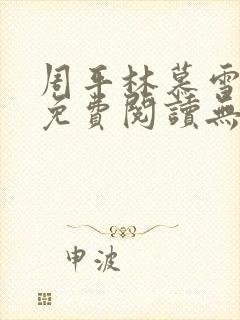 周平林慕雪
免費閱讀無
申波